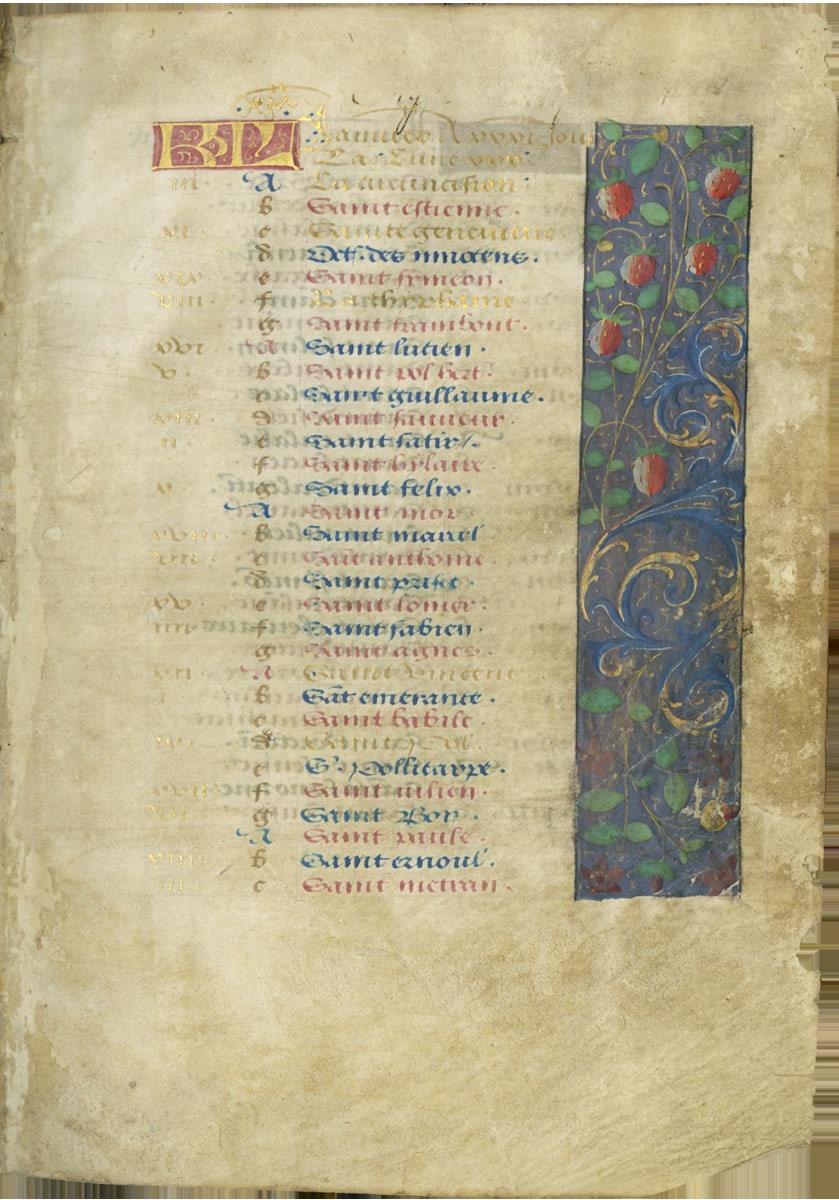 KL Januier A xxxi jour
La lune xxx
iii A La circuncision.
b Saint estienne.
xi c Saincte geneuieue
d Oct. des innocens.
xix e Saint symeon.
viii f La thyphaine
g Saint frambout.
xvi A Saint lucien.
v b Saint pol hert.
c Saint guillaume.
xiii d Saint sauueur.
ii e Saint satir
f Saint hylaire.
x g Saint felix.
A Saint mor
xviii b Saint marcel
vii c Sait anthoine
d Saint prisc
xv e Saint lomer
iiii f Saint fabien.
g Saint agnes.
xii A Saint Vincent
i b Sat emerance.
c Saint babile.
ix d Saint Pol
e S. Pollicarpe.
xvii f Saint iulien.
vi g Saint Bon.
A Saint paule.
xiiii b Saint ernoul.
iii c Saint metran.